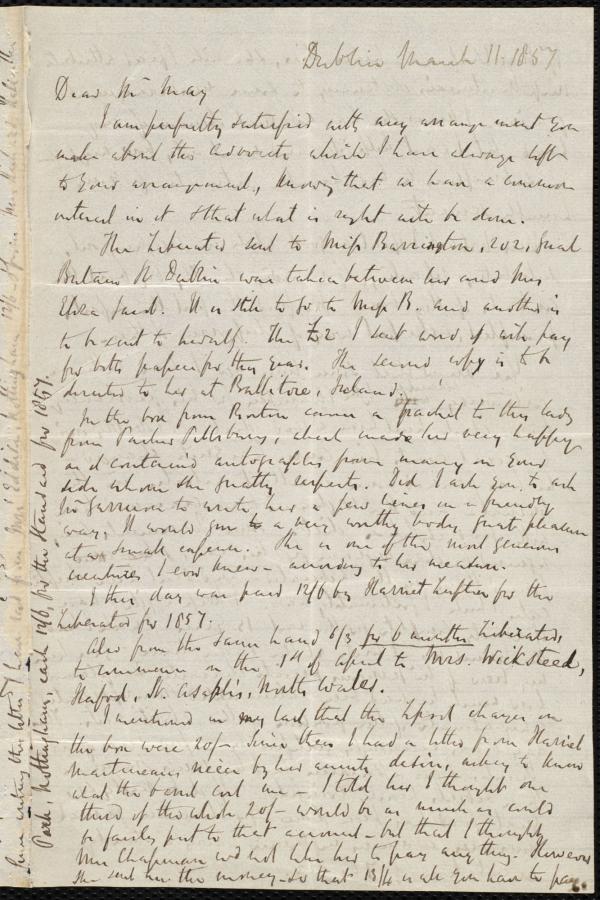 Dublin March 11. 1857
Dear Mr May
I am perfectly satisfied with any arrangement you
make about the Advocate which I have always left
to your arrangement, knowing that we have a common
interest in it & that what is right will be done.
The Liberator sent to Miss Barrington, 202, Great
Britain St Dublin was taken between her and Mrs
Eliza . It is still to go to Miss B. and another is
to be sent to herself. The £2 I sent word of will pay
for both papers for this year. The second copy is to be
directed to her at Ballitore, Ireland.
In the box from Boston came a packet to this lady
from Parker Pillsbury, which made her very happy
and contained autographs from many on your
side whom she greatly respects. Did I ask you to ask
Mr Garrison to write her a few lines in a friendly
way. It would give to a very worthy body great pleasure
at a small expense. She is one of the most generous
creatures I ever knew - according to her measure.
I this day was paid 12/6 by Harriet for the
Liberator for 1857.
Also from the same hand 6/3 for 6 months Liberator
to commence on the 1st of April to Mrs. Wicksteed,
Hafod, St. Asaph's, North Wales.
I mentioned in my last that the Lpool charges on
the box were 20/- Since then I had a letter from Harriet
Martineau's niece by her aunt's desire, asking to know
what the cost me - I told her I thought one
third of the whole 20/- would be as much as could
be fairly put to that account - but that I thought
Mrs Chapman would not like her to pay anything. However
she sent me the money - so that 13/4 is all you have to pay.
Since writing this letter I have had from Mrs
Park, Nottingham, each 12/6, for the Standard for 1857.